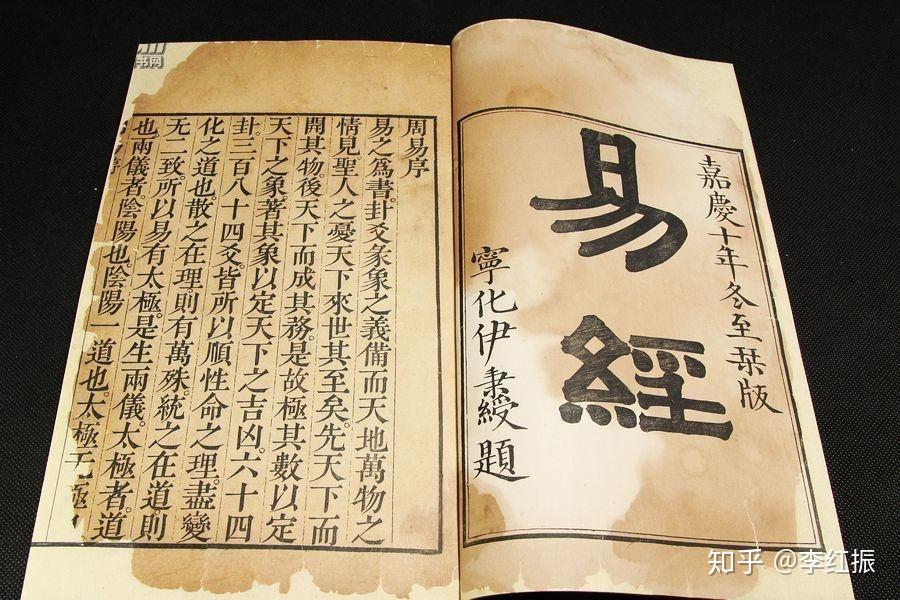 嘉慶十年冬至栞版
易經
寧化伊秉綬題
周易序
易之爲書。卦爻彖象之義備而天地萬物之
情見。聖人之憂天下來世其至矣。先天下而
開其物。後天下而成其務。是故極其數以定
天下之象。著其象以定天下之吉凶。六十四
卦。三百八十四爻。皆所以順性命之理。盡變
化之道也。散之在理。則有萬殊。統之在道。則
无二致。所以易有太極。是生兩儀。太極者。道
也。兩儀者。陰陽也。陰陽一道也。太極无極
书网
知乎 @李红振